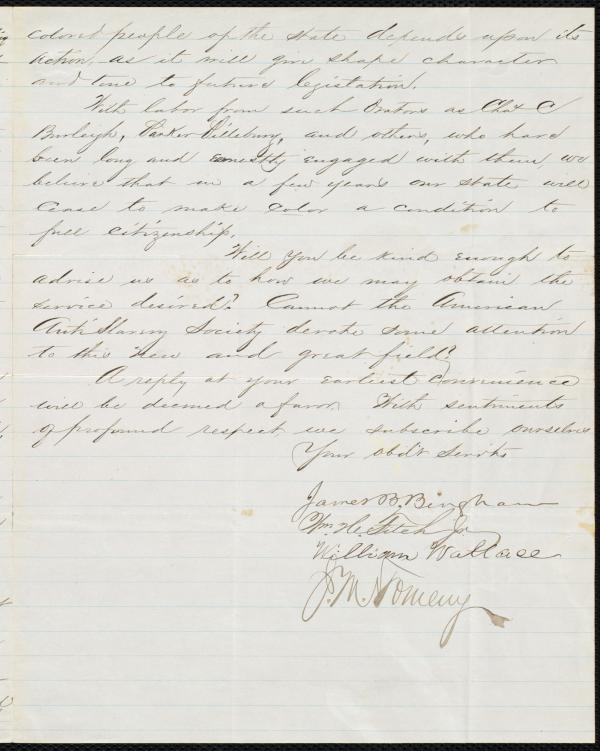 colored people of the state depends upon its
action, as it will give shape character
and tone to future legislation.
With labor from such Orators as Chas C
Burleigh, Parker Pillsbury, and others, who have
been long and earnestly engaged with them, we
believe that in a few years our state will
cease to make color a condition to
full citizenship.
Will you be kind enough to
advise us as to how we may obtain the
service desired? Cannot the American
Anti Slavery Society devote some attention
to this new and great field?
A reply at your earliest convenience
will be deemed a favor. With sentiments
of profound respect, we subscribe ourselves
Your obd't Serv'ts
James B. Bingham
Wm. H. Fitch Jr.
William Wallace
J. M.